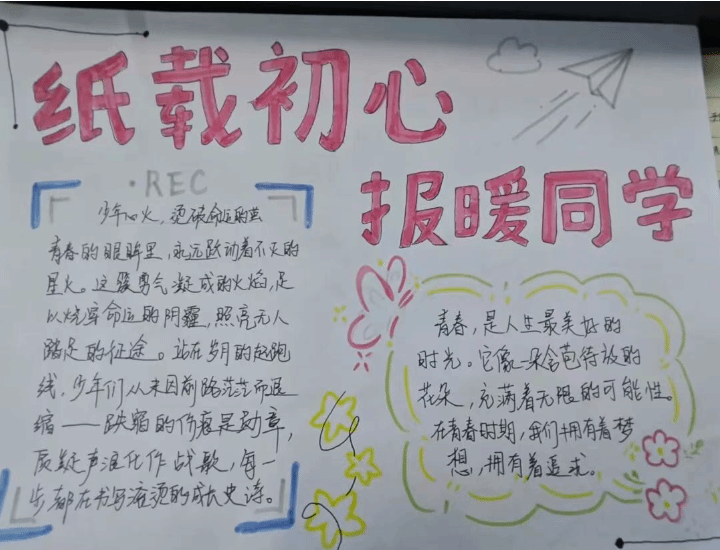 纸载初心
报暖同学
·REC
少年心火，烫破命运的茧
青春的眼眸里，永远跃动着不灭的
星火。这簇勇气凝成的火焰，足
以烧穿命运的阴霾，照亮无人
踏足的征途。站在岁月的起跑
线，少年们从未因前路茫茫而退
缩——跌宕的伤痕是勋章，
质疑声淬化作战歌，每一
步都在书写滚烫的成长史诗。
青春，是人生最美好的
时光。它像一朵含苞待放的
花朵，充满着无限的可能性。
在青春时期，我们拥有着梦
想，拥有着追求。